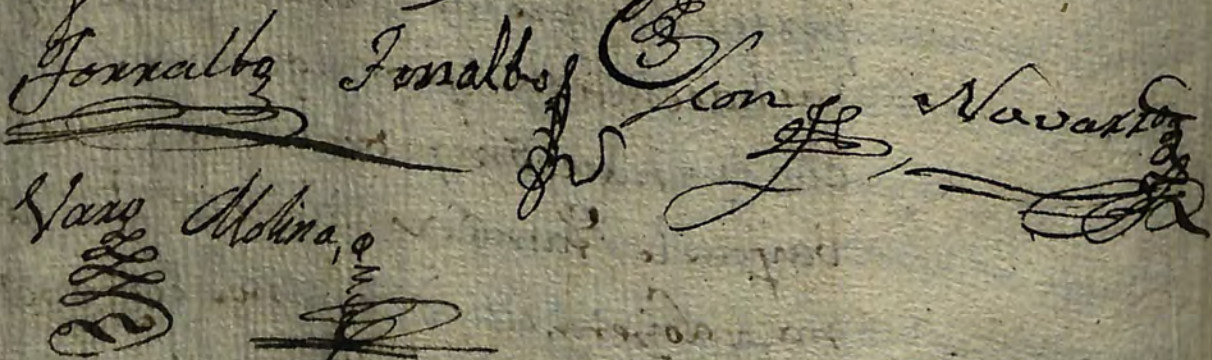 Torralbo Torralbo Leon Navarro
Varo Molina